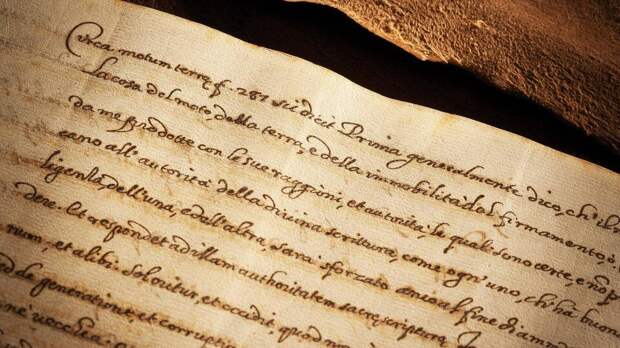 Circa motum terrę f. 287 sic dicit Prima generalmente dico, ch'il m
la cosa del moto della terra, e della immobilità del firmamento ò
da me s̄ produtte con le sue raggioni, et autorità, le quali sono certe, e nō p
cano all'autorità della divina scrittura, come ogn'uno, ch'hà buon
ligenza dell'una, e dell'altra, sarà sforzato anco al fine di amm
dere. Et respondet ad illam authoritatem sacrę scripturę
rum, et alibi. Sol oritur, et occidit quod
de generationū, et corruption
vecchia